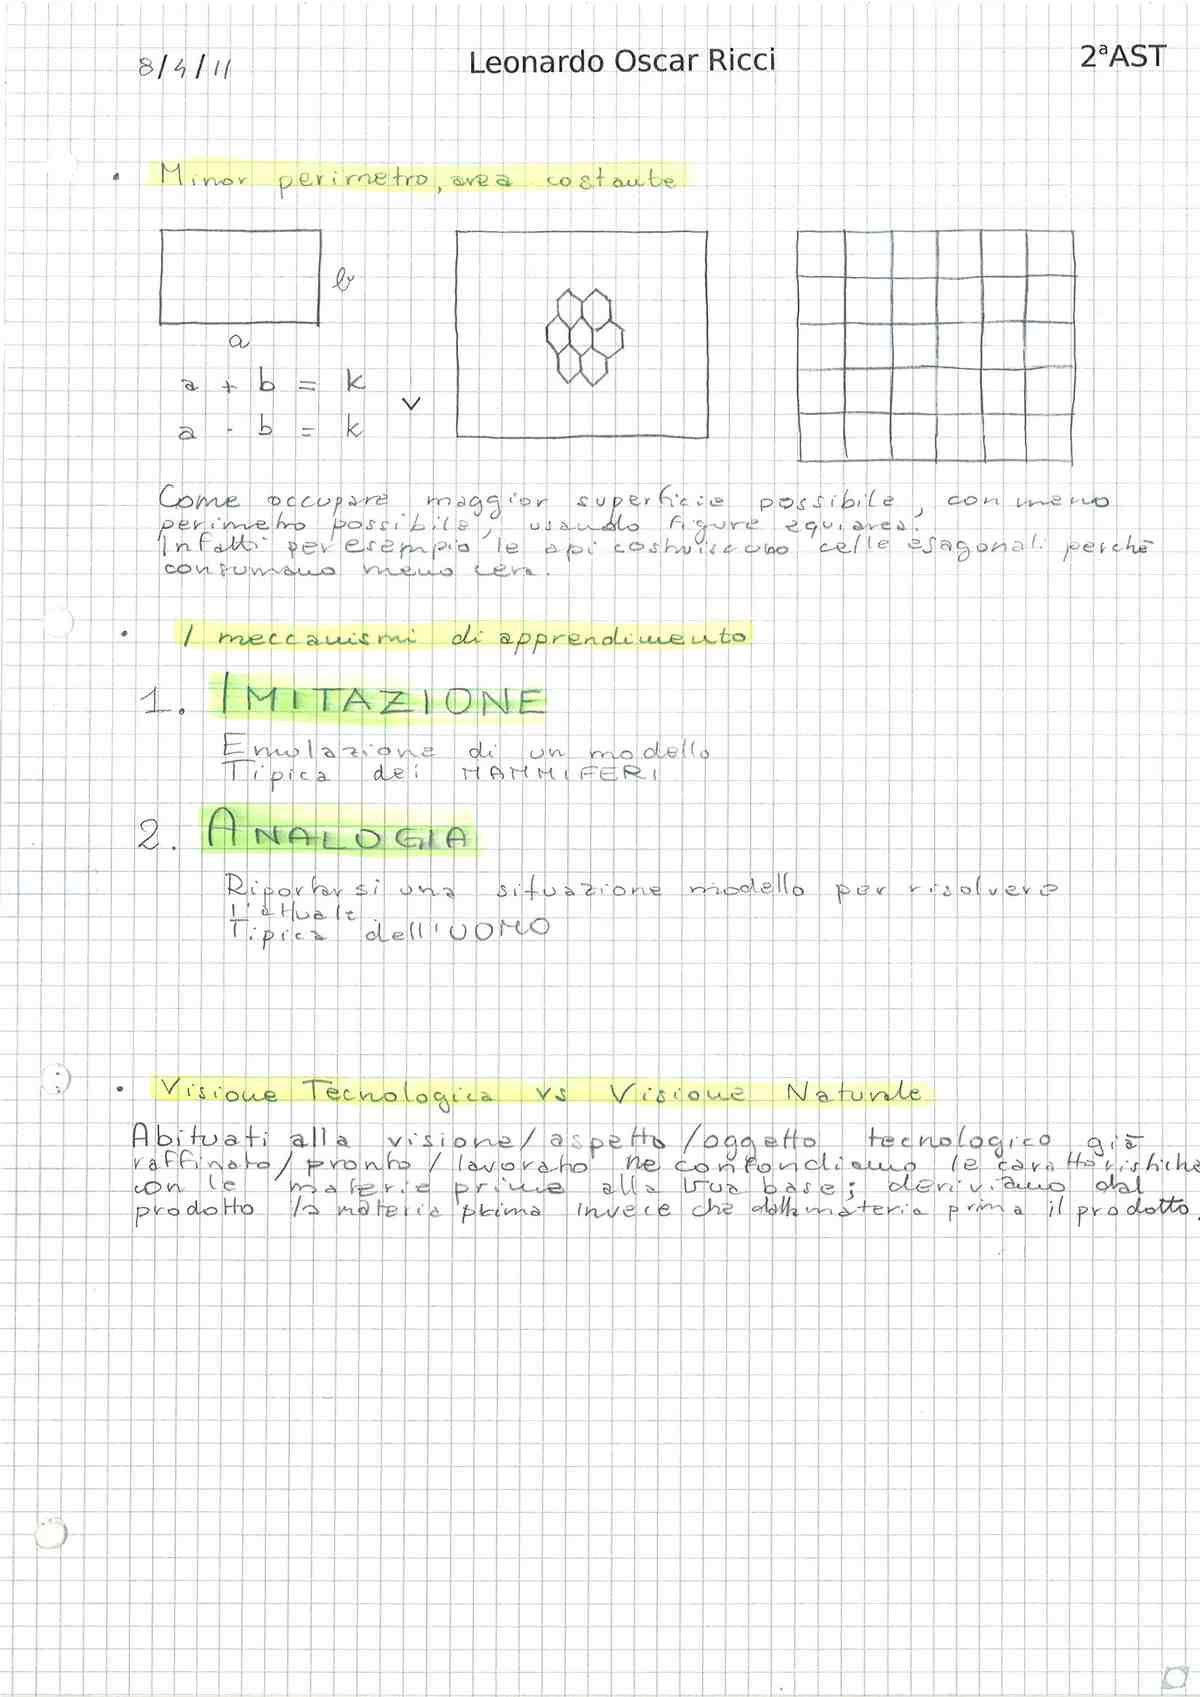 8/4/11
Leonardo Oscar Ricci
2ªAST
• Minor perimetro, area costante
b
a
a + b = k
a · b = k
Come occupare maggior superficie possibile, con meno
perimetro possibile, usando figure equiarea.
Infatti per esempio le api costruiscono celle esagonali perchè
consumano meno cera.
• I meccanismi di apprendimento
1. IMITAZIONE
Emulazione di un modello
Tipica dei MAMMIFERI
2. ANALOGIA
Riportarsi una situazione modello per risolvere
l'attuale
Tipica dell'UOMO
• Visione Tecnologica vs Visione Naturale
Abituati alla visione/aspetto/oggetto tecnologico già
raffinato/pronto/lavorato ne confondiamo le caratteristiche
con le materie prime alla sua base; deriviamo dal
prodotto la materia prima invece che dalla materia prima il prodotto.